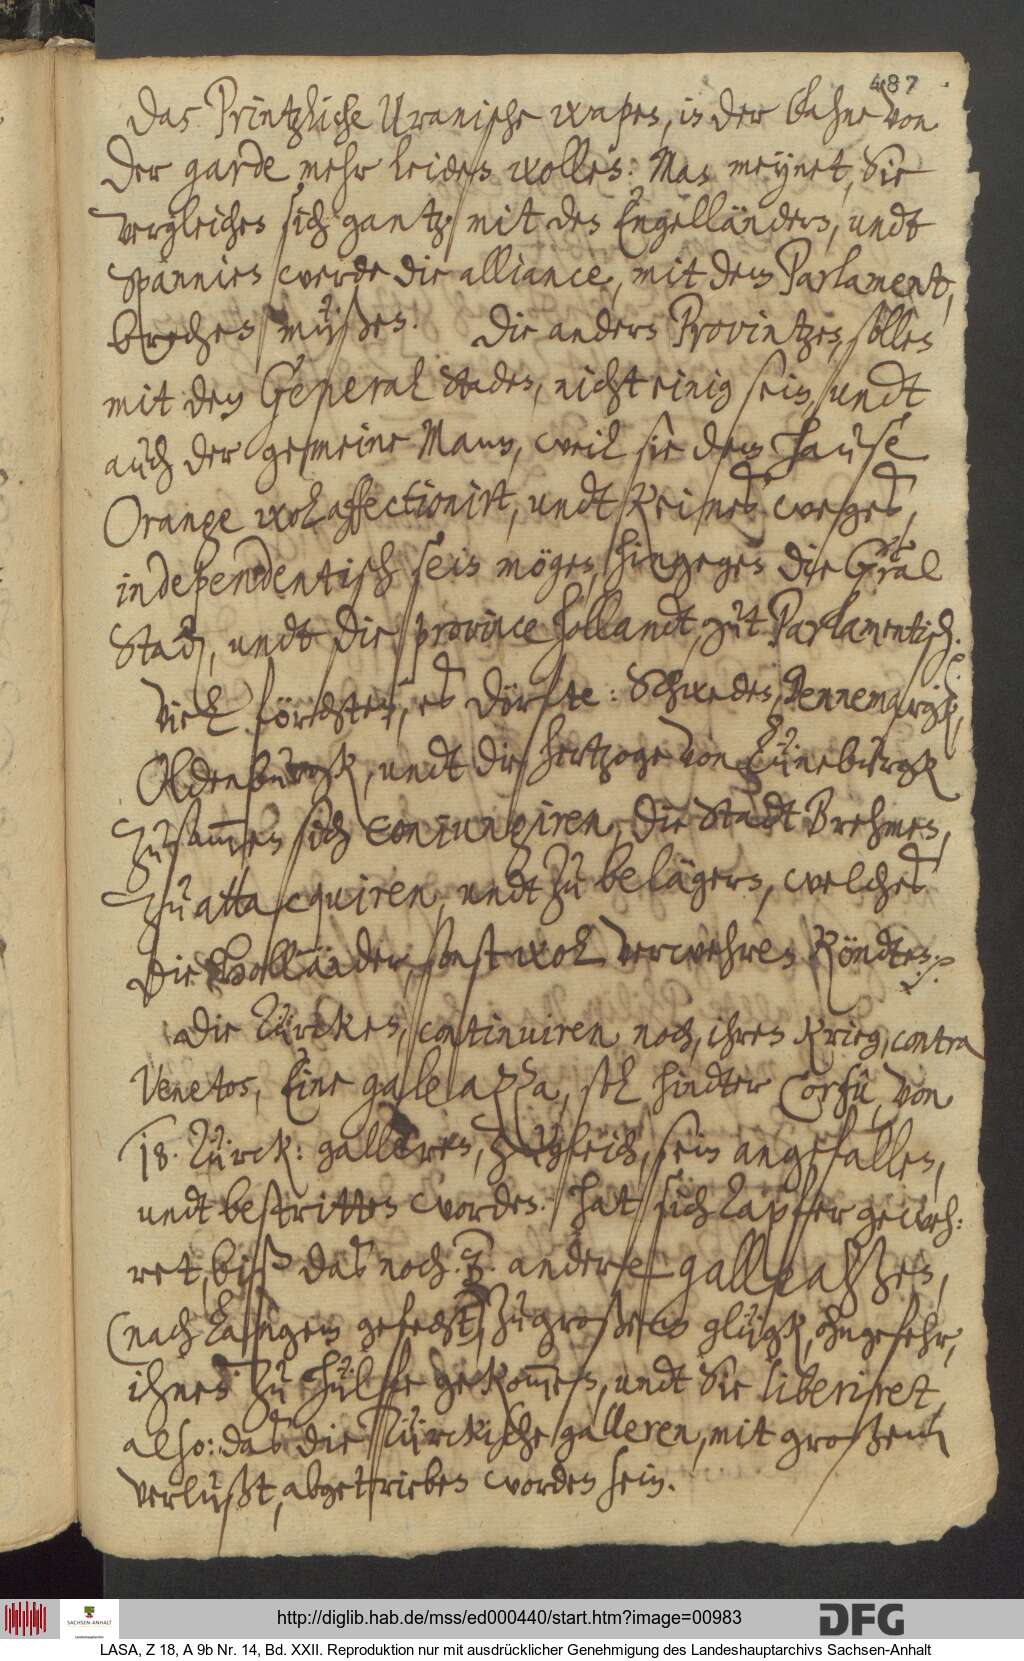 487
das Printzliche Uranische wapen, in der fahne von
der garde, mehr leiden wollen: Man meynet, Sie
vergleichen sich gantz mit den Engelländern, undt
Spannien werde die alliance, mit dem Parlament,
brechen müßen. Die andern Provintzen, sollen
mit den General Staden, nicht einig sein, undt
auch der gemeine Mann, weil sie dem Hause
Orange wol affectionirt, undt keines weges,
independentisch sein mögen, hingegen die G͞ral
Stad:, undt die province Hollandt, zu Parlamentisch.
Viel förchten, es dörfte: Schweden, Dennemargk,
Oldenburgk, undt die hertzoge von Lüneburgk
zusam̅en sich conjungiren, die Stadt Brehmen,
zu attacquiren, undt zu belägern, welches
die Holländer, sonst wol verwehren köndten.
Die Türcken, continuiren noch, ihren krieg, contra
Venetos, Eine galeazza, sol hindter Corfu, von
18. Türck: galleren, zugleich, sein angefallen,
undt bestritten worden. hat sich tapfer geweh:
ret, biß das noch 2. andere galleazzen,
(nach langem gefecht) zu großem glügk, ohngefehr,
ihnen zu hülffe gekom̅en, undt Sie liberiret,
also: das die Türckische galleren, mit großem
verlußt, abgetrieben worden sein.
http://diglib.hab.de/mss/ed000440/start.htm?image=00983
SACHSEN-ANHALT
DFG
LASA, Z 18, A 9b Nr. 14, Bd. XXII. Reproduktion nur mit ausdrücklicher Genehmigung des Landeshauptarchivs Sachsen-Anhalt